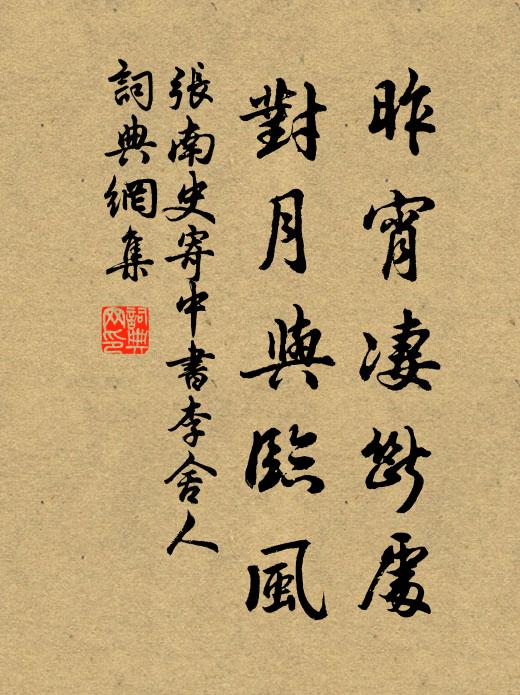 昨宵凄斷處
對月與臨風
張南史寄中書李舍人
詞典網集
詞典网印